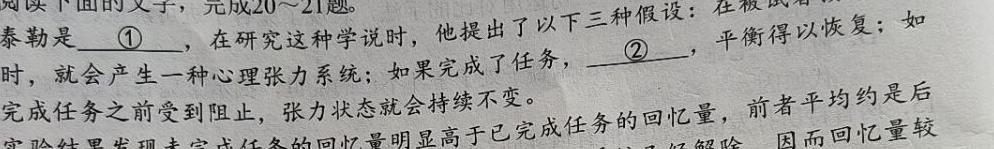 阅读下面的文字，完成20～21题。
泰勒是 ① ，在研究这种学说时，他提出了以下三种假设：在被试
时，就会产生一种心理张力系统；如果完成了任务， ② ，平衡得以恢复；如
完成任务之前受到阻止，张力状态就会持续不变。
实验结果发现未完成任务的回忆量明显高于已完成任务的回忆量，前者平均约是后
解除，因而回忆量较